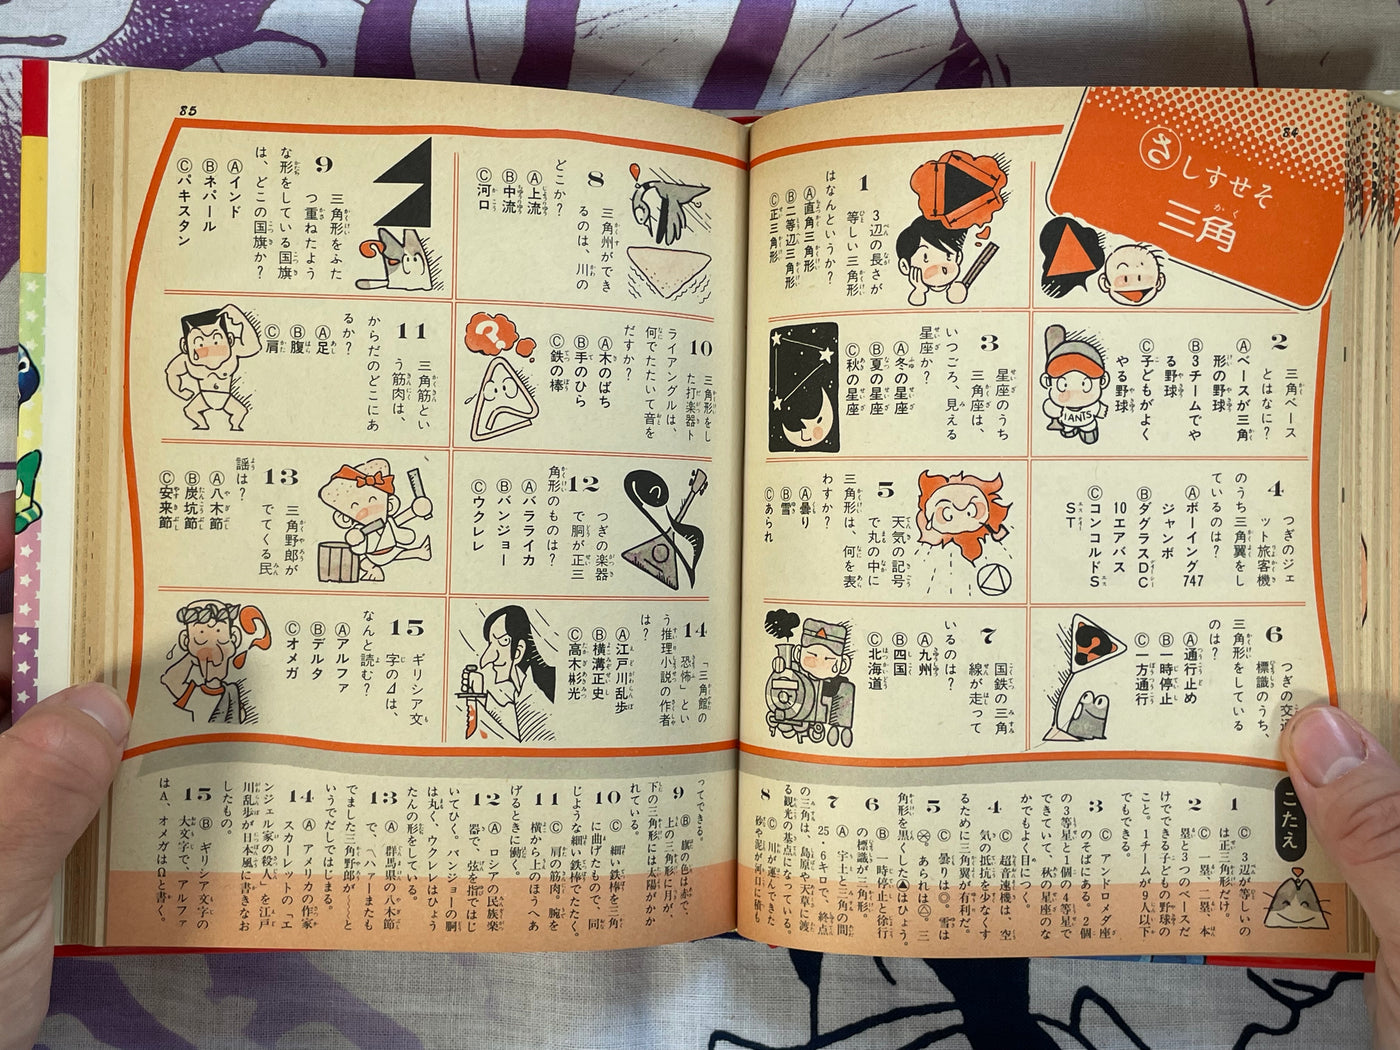 84
さしすせそ
三角
1
3辺の長さが
等しい三角形
はなんというか?
Ⓐ直角三角形
Ⓑ二等辺三角形
Ⓒ正三角形
2
三角ベース
とはなに?
Ⓐベースが三角
形の野球
Ⓑ3チームでや
る野球
Ⓒ子どもがよく
やる野球
IANTS
3
星座のうち
三角座は、
いつごろ、見える
星座か?
Ⓐ冬の星座
Ⓑ夏の星座
Ⓒ秋の星座
4
つぎのジェ
ット旅客機
のうち三角翼をし
ているのは?
Ⓐボーイング747
ジャンボ
ⒷダグラスDC
10エアバス
ⒸコンコルドS
ST
5
天気の記号
で丸の中に
三角形は、何を表
わすか?
Ⓐ曇り
Ⓑ雪
Ⓒあられ
6
つぎの交通
標識のうち、
三角形をしている
のは?
Ⓐ通行止め
Ⓑ一時停止
Ⓒ一方通行
7
国鉄の三角
線が走って
いるのは?
Ⓐ九州
Ⓑ四国
Ⓒ北海道
85
8
三角州ができ
るのは、川の
どこか?
Ⓐ上流
Ⓑ中流
Ⓒ河口
9
三角形をふた
つ重ねたよう
な形をしている国旗
は、どこの国旗か?
Ⓐインド
Ⓑネパール
Ⓒパキスタン
10
三角形をし
た打楽器ト
ライアングルは、
何でたたいて音を
だすか?
Ⓐ木のばち
Ⓑ手のひら
Ⓒ鉄の棒
11
三角筋とい
う筋肉は、
からだのどこにあ
るか?
Ⓐ足
Ⓑ腹
Ⓒ肩
12
つぎの楽器
で胴が正三
角形のものは?
Ⓐバラライカ
Ⓑバンジョー
Ⓒウクレレ
13
三角野郎が
でてくる民
謡は?
Ⓐ八木節
Ⓑ炭坑節
Ⓒ安来節
14
「三角館の
恐怖」とい
う推理小説の作者
は?
Ⓐ江戸川乱歩
Ⓑ横溝正史
Ⓒ高木彬光
15
ギリシア文
字の⊿は、
なんと読む?
Ⓐアルファ
Ⓑデルタ
Ⓒオメガ
こたえ
1
Ⓒ 3辺が等しいの
は正三角形だけ。
2
Ⓒ 一塁、二塁、本
塁と3つのベースだ
けでできる子どもの野球の
こと。1チームが9人以下
でもできる。
3
Ⓒ アンドロメダ座
のそばにある。2個
の3等星と1個の4等星で
できていて、秋の星座のな
かでもよく目につく。
4
Ⓒ 超音速機は、空
気の抵抗を少なくす
るために三角翼が有利だ。
5
Ⓒ 曇りは◎。雪は
。あられは。三
角形を黒くした▲はひょう。
6
Ⓑ 一時停止と徐行
の標識が三角形。
7
Ⓐ 宇土と三角の間
25・6キロで、終点
の三角は、島原や天草に渡
る観光の基点になっている。
8
Ⓒ 川が運んできた
砂や泥が河口に積も
ってできる。
9
Ⓑ 旗の色は赤で、
上の三角形に月が、
下の三角形には太陽がかか
れている。
10
Ⓒ 細い鉄棒を三角
に曲げたもので、同
じような細い鉄棒でたたく。
11
Ⓒ 肩の筋肉。腕を
横から上のほうへあ
げるときに働く。
12
Ⓐ ロシアの民族楽
器で、弦を指ではじ
いてひく。バンジョーの胴
は丸く、ウクレレはひょう
たんの形をしている。
13
Ⓐ 群馬県の八木節
で、〽ハァーまたも
でました三角野郎が〜と
いうでだしではじまる。
14
Ⓐ アメリカの作家
スカーレットの「エ
ンジェル家の殺人」を江戸
川乱歩が日本風に書きなお
したもの。
15
Ⓑ ギリシア文字の
大文字で、アルファ
はA、オメガはΩと書く。